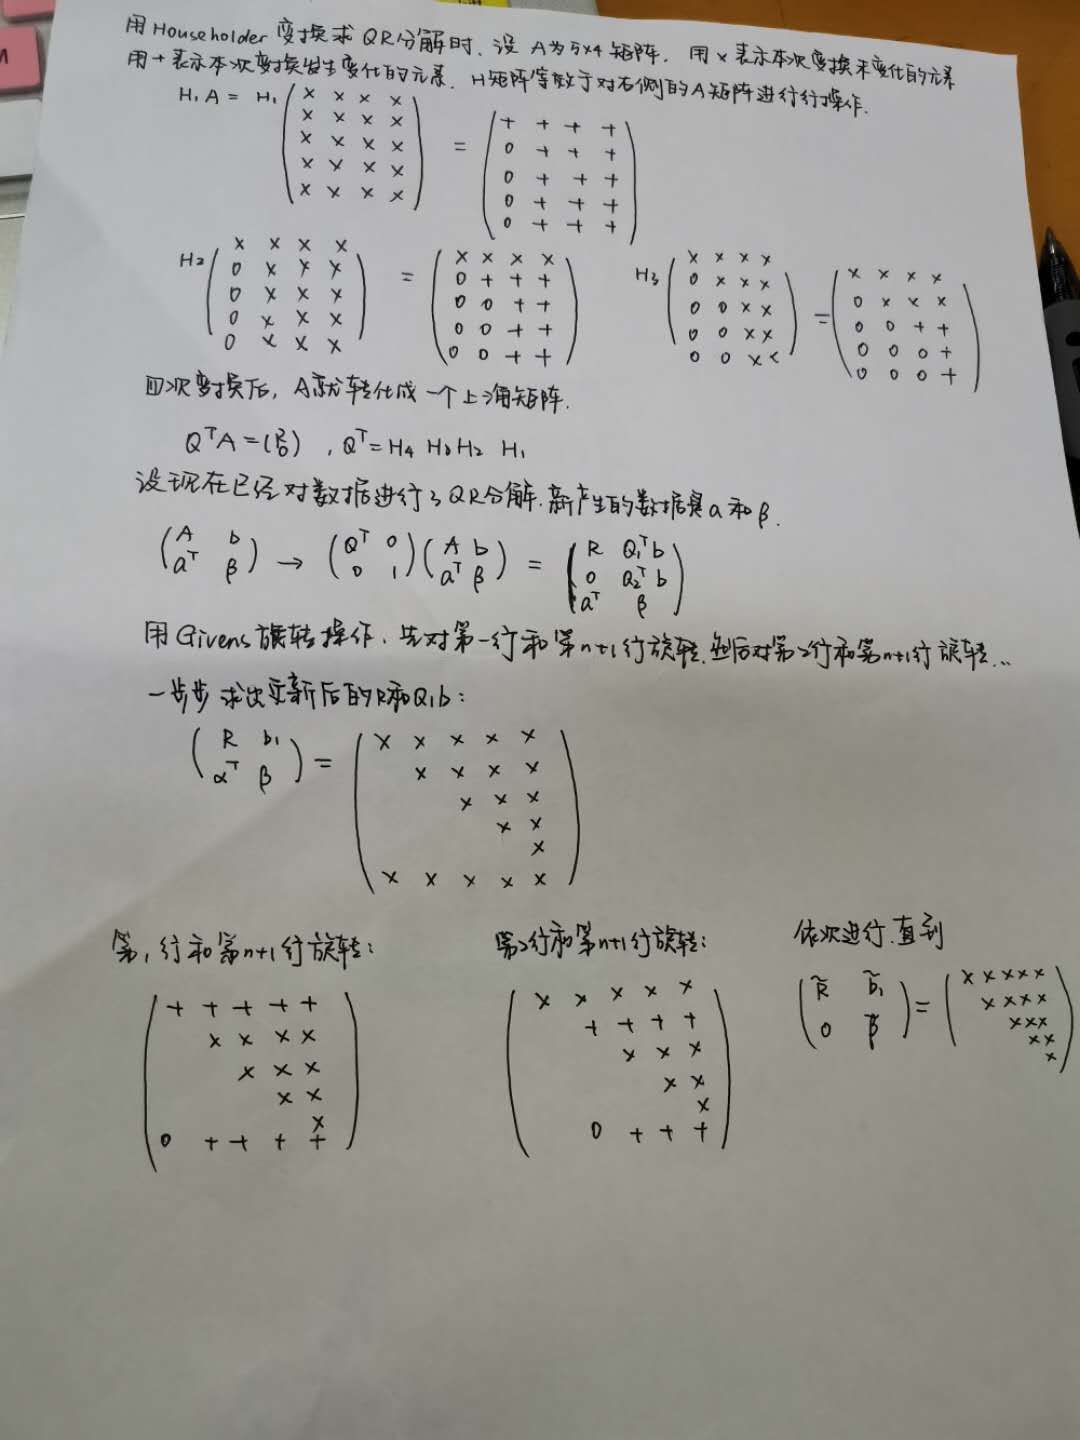 用Householder变换求QR分解时,设A为5×4矩阵,用×表示本次变换未变化的元素
用+表示本次变换发生变化的元素,H矩阵等效于对右侧的A矩阵进行行操作.
H₁A = H₁ (× × × × = (+ + + +
× × × × 0 + + +
× × × × 0 + + +
× × × × 0 + + +
× × × ×) 0 + + +)
H₂ (× × × × = (× × × × H₃ (× × × × = (× × × ×
0 × × × 0 + + + 0 × × × 0 × × ×
0 × × × 0 0 + + 0 0 × × 0 0 + +
0 × × × 0 0 + + 0 0 × × 0 0 0 +
0 × × ×) 0 0 + +) 0 0 × ×) 0 0 0 +)
四次变换后,A就转化成一个上三角矩阵.
QᵀA = (R 0), Qᵀ = H₄ H₃ H₂ H₁
设现在已经对数据进行了QR分解,新产生的数据是a和β.
(A b → (Qᵀ 0 (A b = (R Q₁ᵀb
aᵀ β) 0 1) aᵀ β) 0 Q₂ᵀb
aᵀ β)
用Givens旋转操作,先对第一行和第n+1行旋转,然后对第2行和第n+1行旋转...
一步步求出更新后的R和Q₁b:
(R b₁ = (× × × × ×
αᵀ β) × × × ×
× × ×
× ×
×
× × × × ×)
第1行和第n+1行旋转: 第2行和第n+1行旋转: 依次进行,直到
(+ + + + + (× × × × × (R̃ b̃₁ = (× × × × ×
× × × × + + + + 0 β̃) × × × ×
× × × × × × × × ×
× × × × × ×
× × ×)
0 + + + +) 0 + + +)